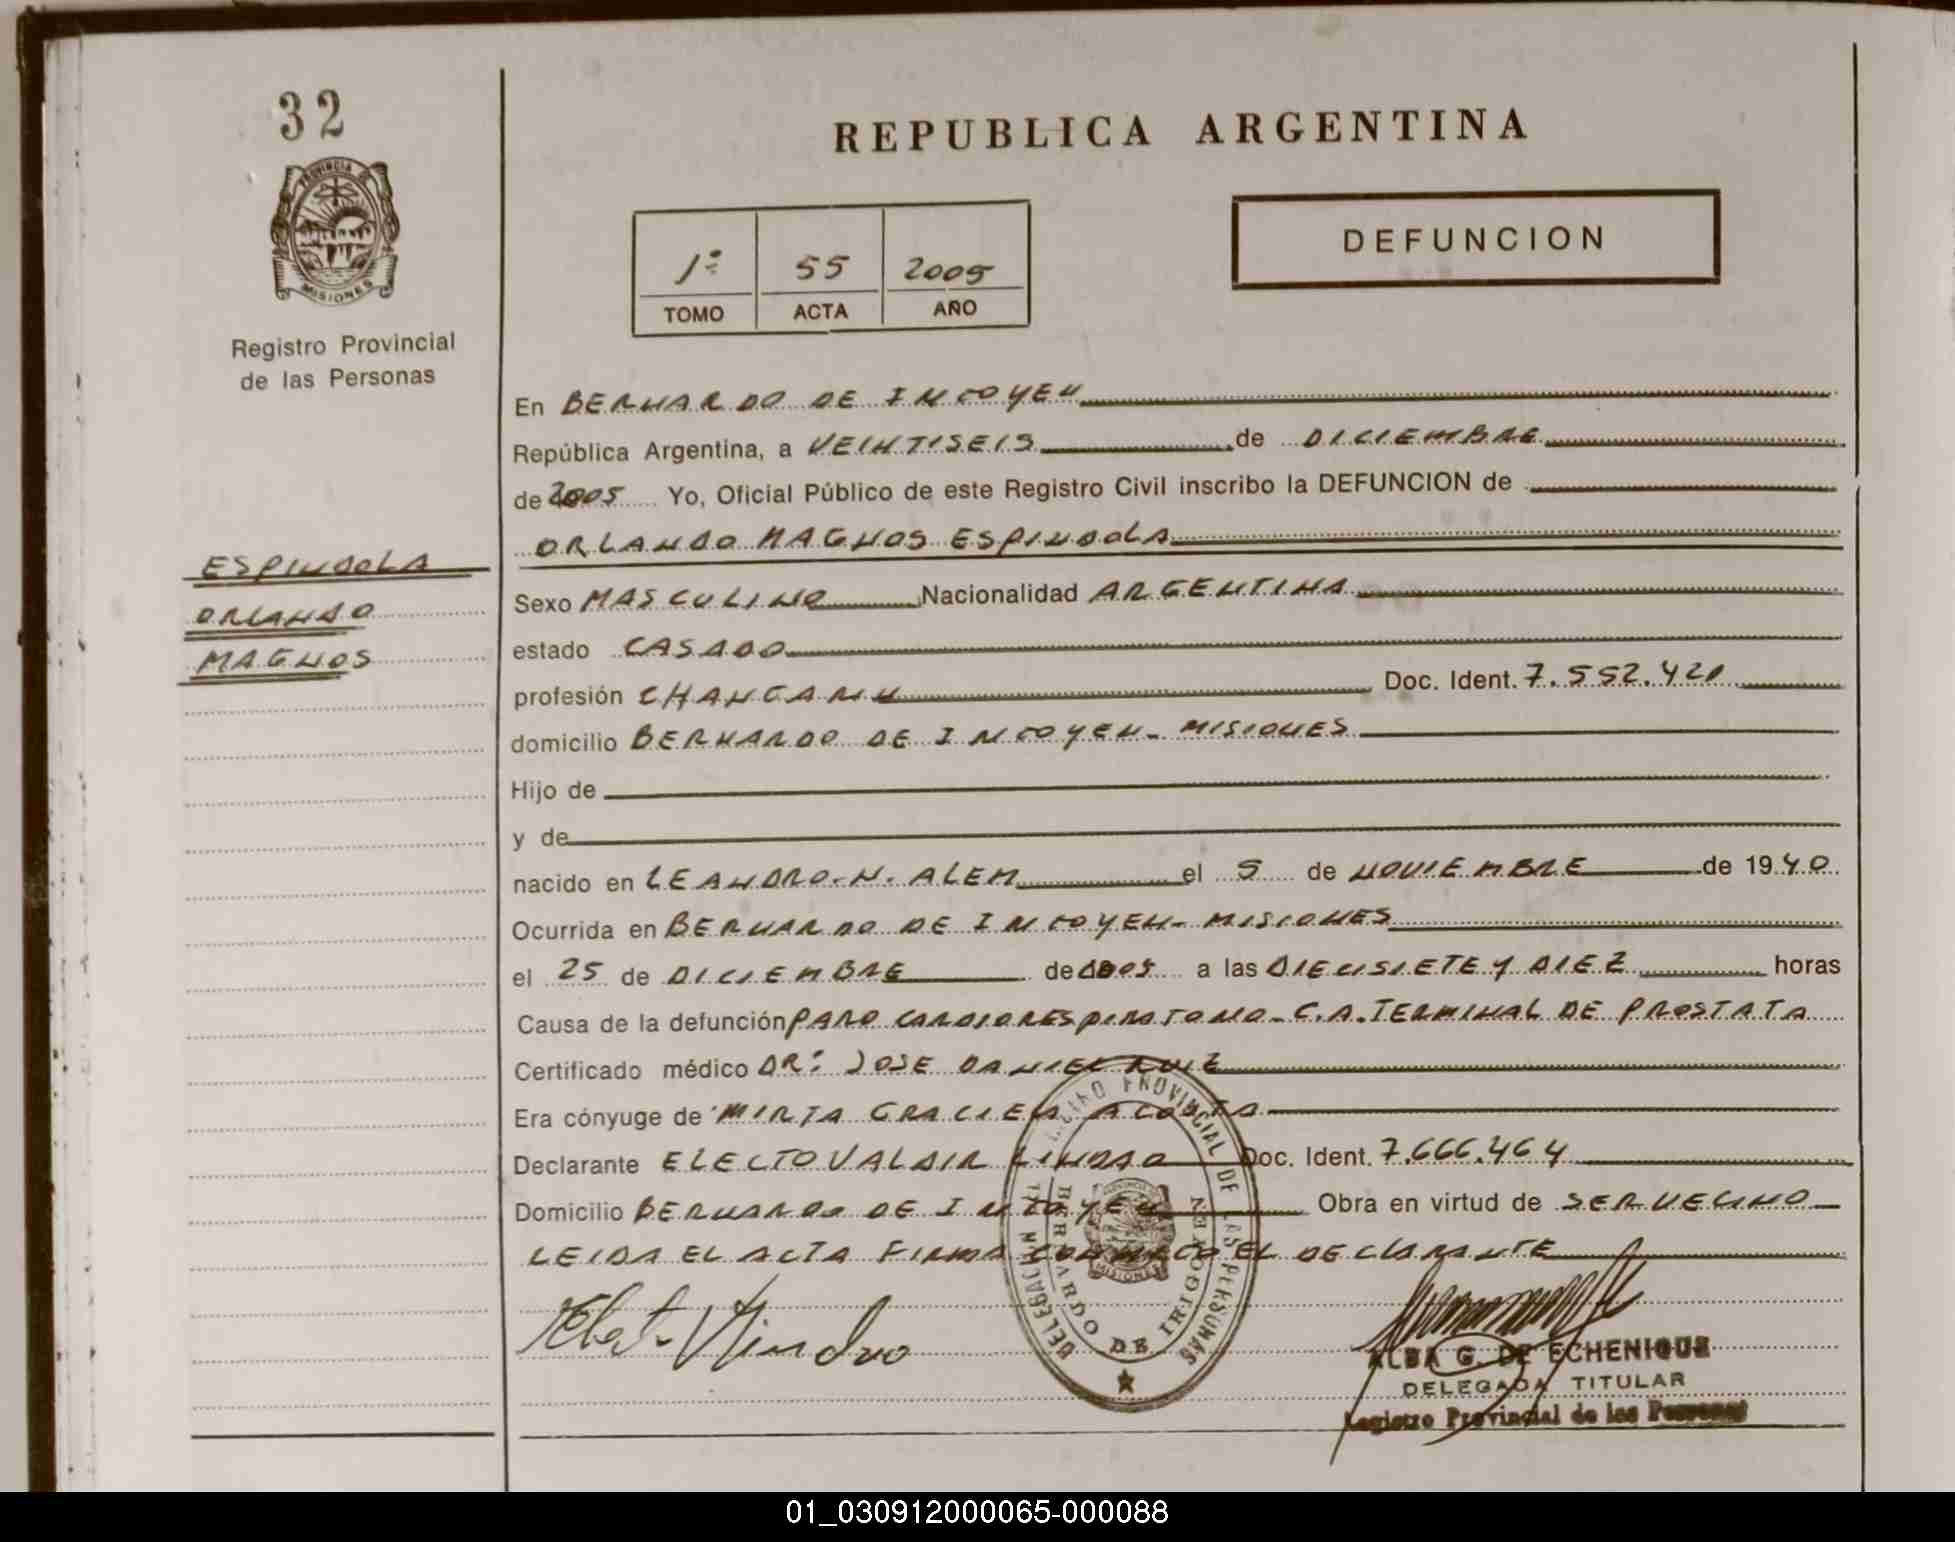 32
PROVINCIA DE
MISIONES
Registro Provincial
de las Personas
REPUBLICA ARGENTINA
1º 55 2005
TOMO ACTA AÑO
DEFUNCION
En BERNARDO DE IRIGOYEN
República Argentina, a VEINTISEIS de DICIEMBRE
de 2005 Yo, Oficial Público de este Registro Civil inscribo la DEFUNCION de
ORLANDO MAGNOS ESPINDOLA
ESPINDOLA
ORLANDO
MAGNOS
Sexo MASCULINO Nacionalidad ARGENTINA
estado CASADO
profesión Doc. Ident. 7.552.420
domicilio BERNARDO DE IRIGOYEN - MISIONES
Hijo de
y de
nacido en LEANDRO-N. ALEM el 5 de NOVIEMBRE de 1940
Ocurrida en BERNARDO DE IRIGOYEN - MISIONES
el 25 de DICIEMBRE de 2005 a las DIECISIETE Y DIEZ horas
Causa de la defunción PARO CARDIORESPIRATORIO - C.A. TERMINAL DE PROSTATA
Certificado médico DR: JOSE DANIEL RUIZ
Era cónyuge de MIRTA GRACIELA ACOSTA
Declarante ELECTO VALDIR LINDRO Doc. Ident. 7.666.464
Domicilio BERNARDO DE IRIGOYEN Obra en virtud de SER VECINO
LEIDA EL ACTA FIRMA CONMIGO EL DECLARANTE
REGISTRO PROVINCIAL DE LAS PERSONAS
DELEGACION
BERNARDO DE IRIGOYEN
MISIONES
ALBA G. DE ECHENIQUE
DELEGADA TITULAR
Registro Provincial de las Personas
01_030912000065-000088